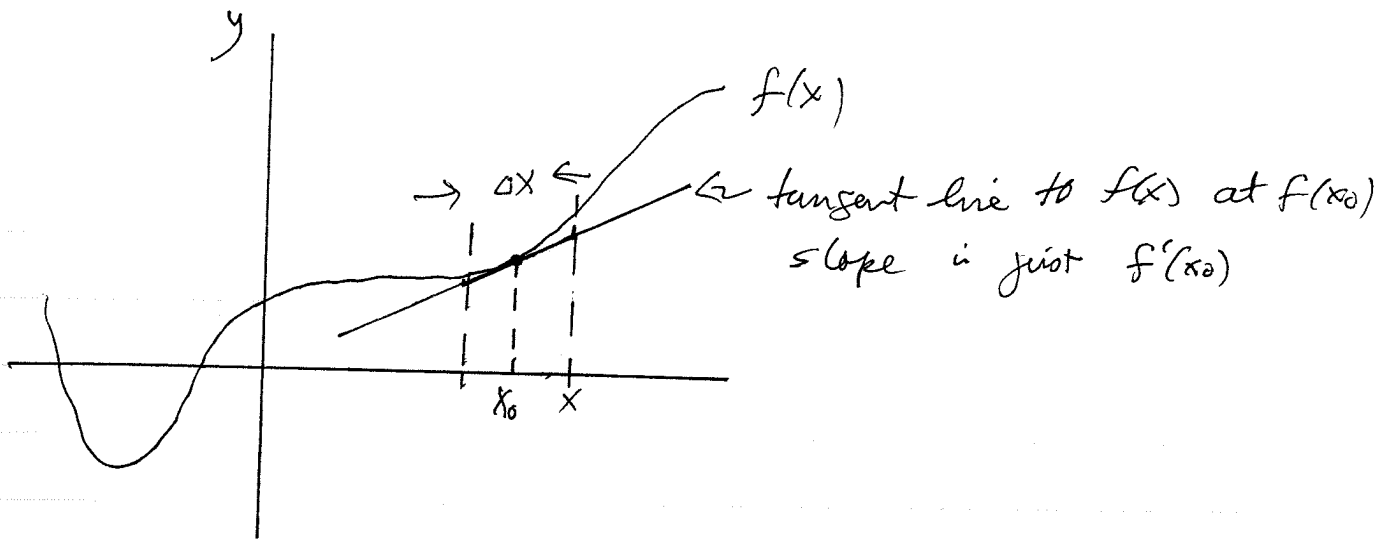 y
f(x)
→ Δx ←
← tangent line to f(x) at f(x₀)
slope is just f'(x₀)
x₀ x